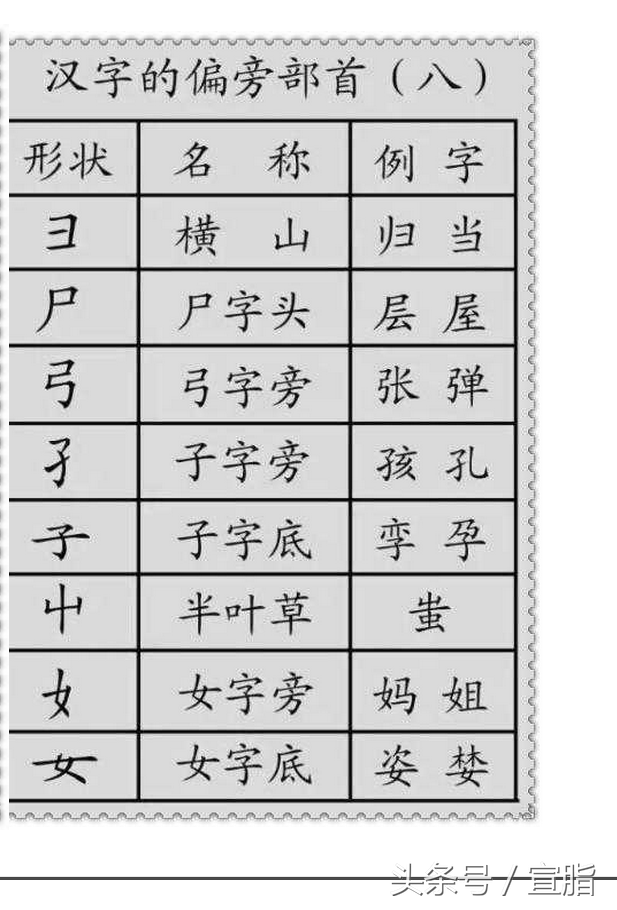 汉字的偏旁部首（八）
形状 名称 例字
彐 横山 归 当
尸 尸字头 层 屋
弓 弓字旁 张 弹
孑 子字旁 孩 孔
子 子字底 孪 孕
屮 半叶草 蚩
女 女字旁 妈 姐
女 女字底 姿 婪
头条号 / 宣脂